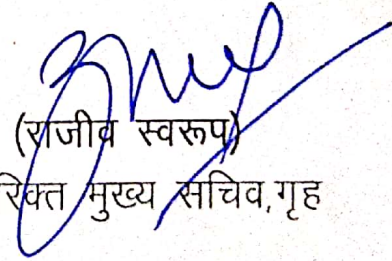 (राजीव स्वरूप)
रिक्त मुख्य सचिव,गृह